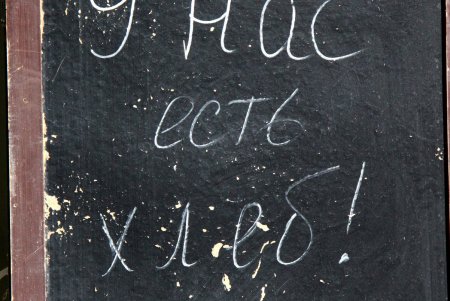 У нас
есть
хлеб!